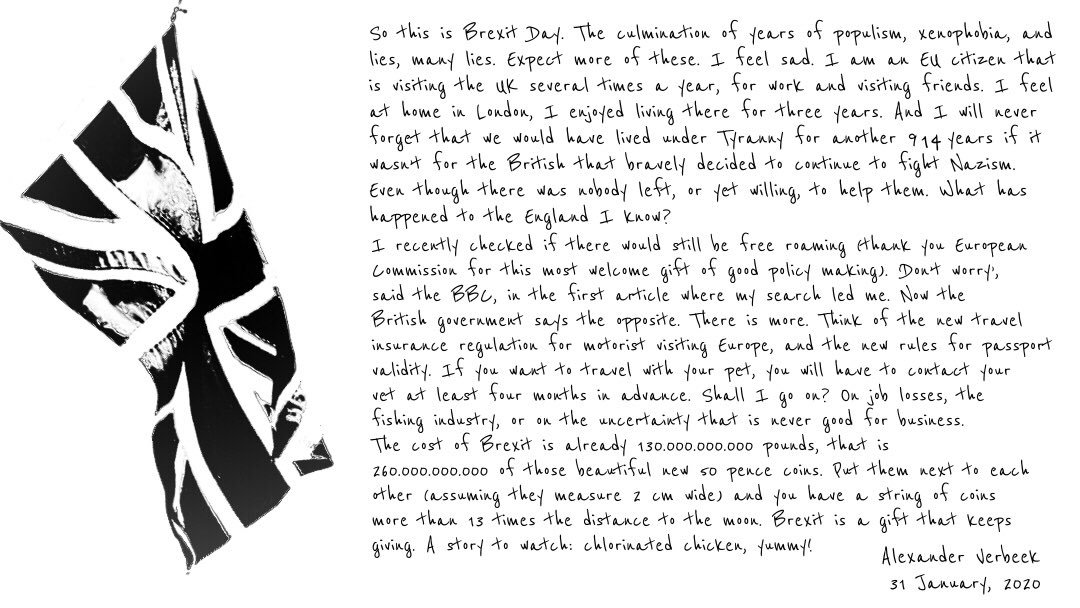 So this is Brexit Day. The culmination of years of populism, xenophobia, and
lies, many lies. Expect more of these. I feel sad. I am an EU citizen that
is visiting the UK several times a year, for work and visiting friends. I feel
at home in London, I enjoyed living there for three years. And I will never
forget that we would have lived under Tyranny for another 914 years if it
wasnt for the British that bravely decided to continue to fight Nazism.
Even though there was nobody left, or yet willing, to help them. What has
happened to the England I know?
I recently checked if there would still be free roaming (thank you European
Commission for this most welcome gift of good policy making). Dont worry',
said the BBC, in the first article where my search led me. Now the
British government says the opposite. There is more. Think of the new travel
insurance regulation for motorist visiting Europe, and the new rules for passport
validity. If you want to travel with your pet, you will have to contact your
vet at least four months in advance. Shall I go on? On job losses, the
fishing industry, or on the uncertainty that is never good for business.
The cost of Brexit is already 130.000.000.000 pounds, that is
260.000.000.000 of those beautiful new 50 pence coins. Put them next to each
other (assuming they measure 2 cm wide) and you have a string of coins
more than 13 times the distance to the moon. Brexit is a gift that keeps
giving. A story to watch: chlorinated chicken, yummy!
Alexander Verbeek
31 January, 2020